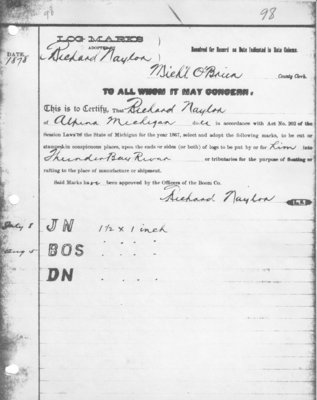 98
LOG MARKS
ADOPTED BY
Received for Record on Date Indicated in Date Column.
DATE
1878
Richard Naylon
Mich'l O'Brien
County Clerk.
TO ALL WHOM IT MAY CONCERN:
This is to Certify, That Richard Naylon
of Alpena Michigan in accordance with Act No. 202 of the
Session Laws of the State of Michigan for the year 1867, select and adopt the following marks, to be cut or
stamped in conspicuous places, upon the ends or sides (or both) of logs to be put by or for him into
Thunder Bay River or tributaries for the purpose of floating or
rafting to the place of manufacture or shipment.
Said Marks have been approved by the Officers of the Boom Co.
Richard Naylon
July 8 JN 1½ x 1 inch
Aug 5 BOS " " " "
DN " " " "